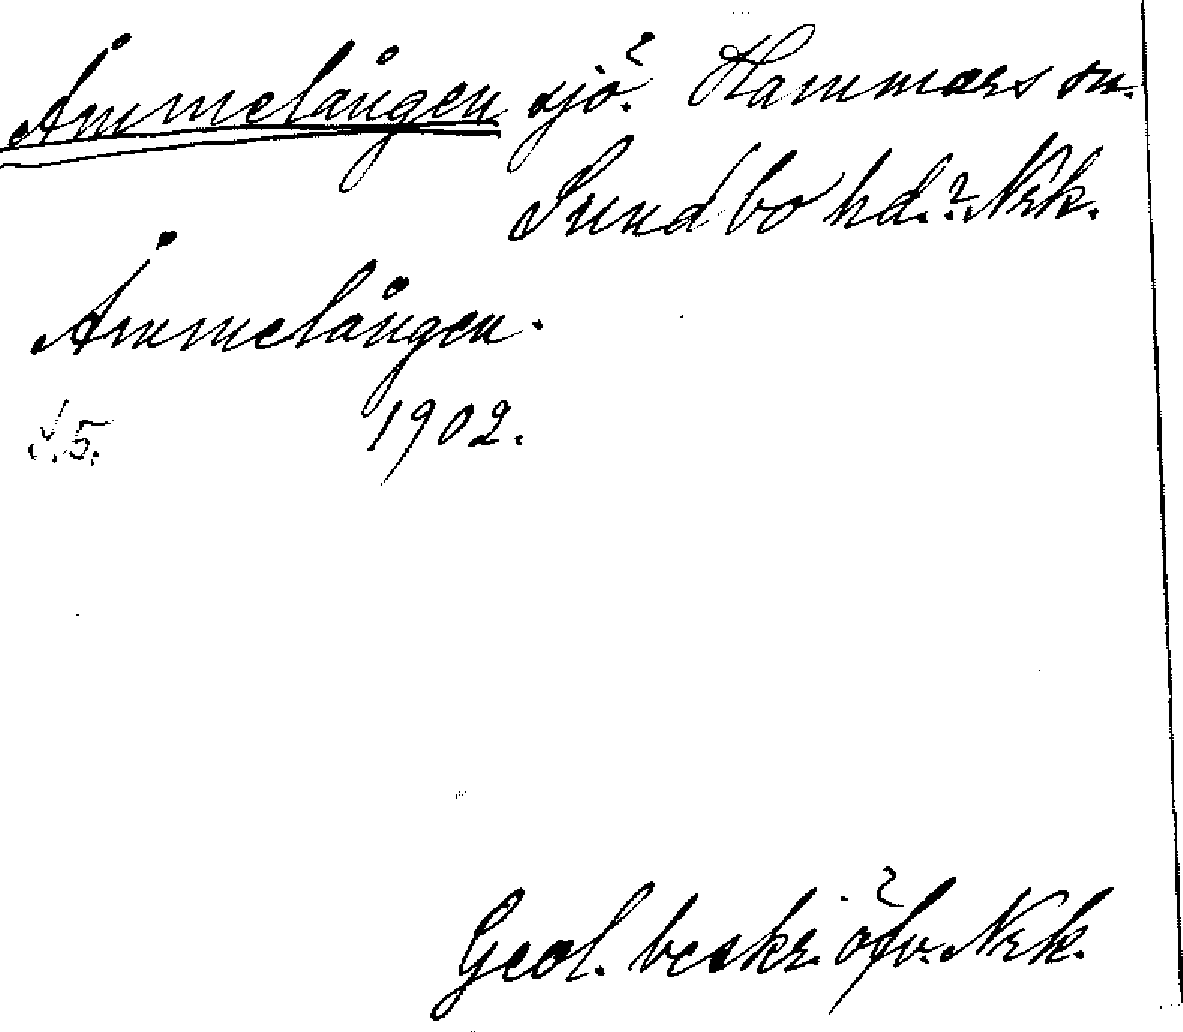 Åmmelången sjö. Hammars sn.
Sundbo hd. Nrk.
Åmmelången.
S. 5. 1902.
Geol. beskr. öfv. Nrk.